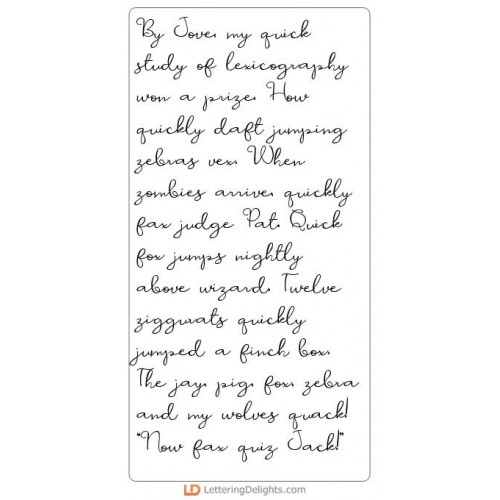 By Jove, my quick
study of lexicography
won a prize. How
quickly daft jumping
zebras vex. When
zombies arrive, quickly
fax judge Pat. Quick
fox jumps nightly
above wizard. Twelve
ziggurats quickly
jumped a finch box.
The jay, pig, fox, zebra
and my wolves quack!
"Now fax quiz Jack!"
LD LetteringDelights.com